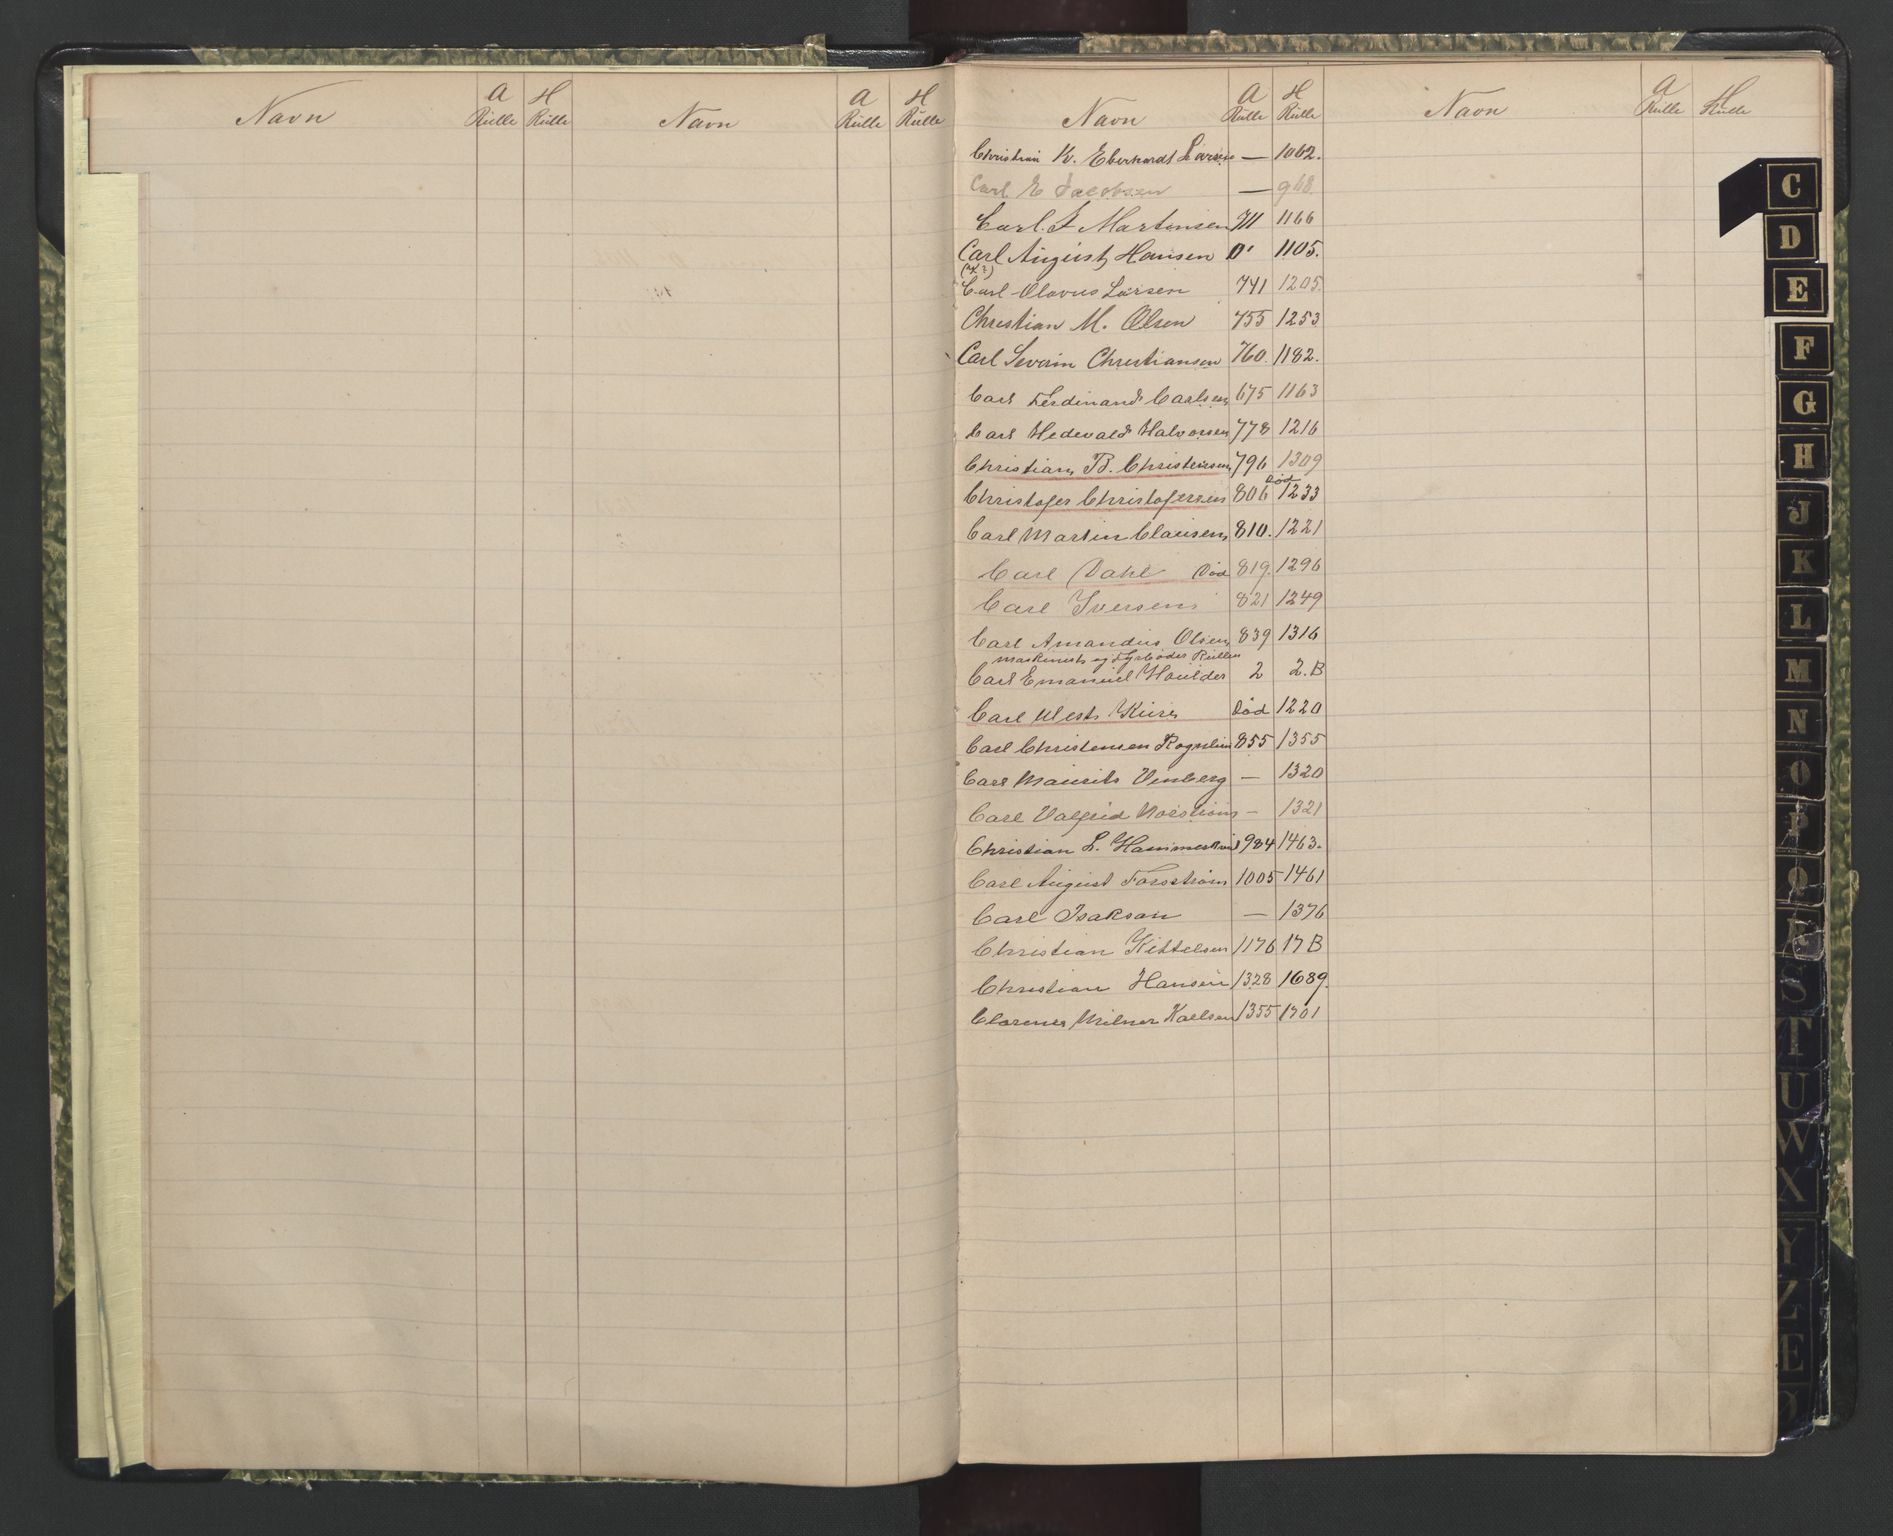 Navn A Rulle H Rulle Navn A Rulle H Rulle
Navn A Rulle H Rulle Navn A Rulle H Rulle
Christian K. Eberhardt Larsen — 1062.
Carl E Jacobsen — 968
Carl. F Martinsen 711 1166
Carl August Hansen 0' 1105.
Carl Olavus Larsen 741 1205.
Christian M. Olsen 755 1253
Carl Severin Christiansen 760. 1182.
Carl Ferdinand Carlsen 675 1163
Carl Hedevald Halvorsen 778 1216
Christian B. Christensen 796 1309
Christofer Christofersen 806 Død 1233
Carl Martin Clausen 810. 1221
Carl Dahl Død 819. 1296
Carl Iversen 821 1249
Carl Amandus Olsen 839 1316
Maskinist og Fyrbøder Rullen
Carl Emanuel Houlder 2 2.B
Carl West Død 1220
Carl Christensen Rognlien 855 1355
Carl Maurits Vinberg — 1320
Carl Valfrid — 1321
Christian L. 984 1463.
Carl August Forsström 1005 1461
Carl Isakson — 1376
Christian Kittelsen 1176 17B
Christian Hansen 1328 1689.
Clarence Milner Karlsen 1355 1701
C
D
E
F
G
H
J
K
L
M
N
O
P
Q
R
S
T
U
W
X
Y
Z
Æ
Ø